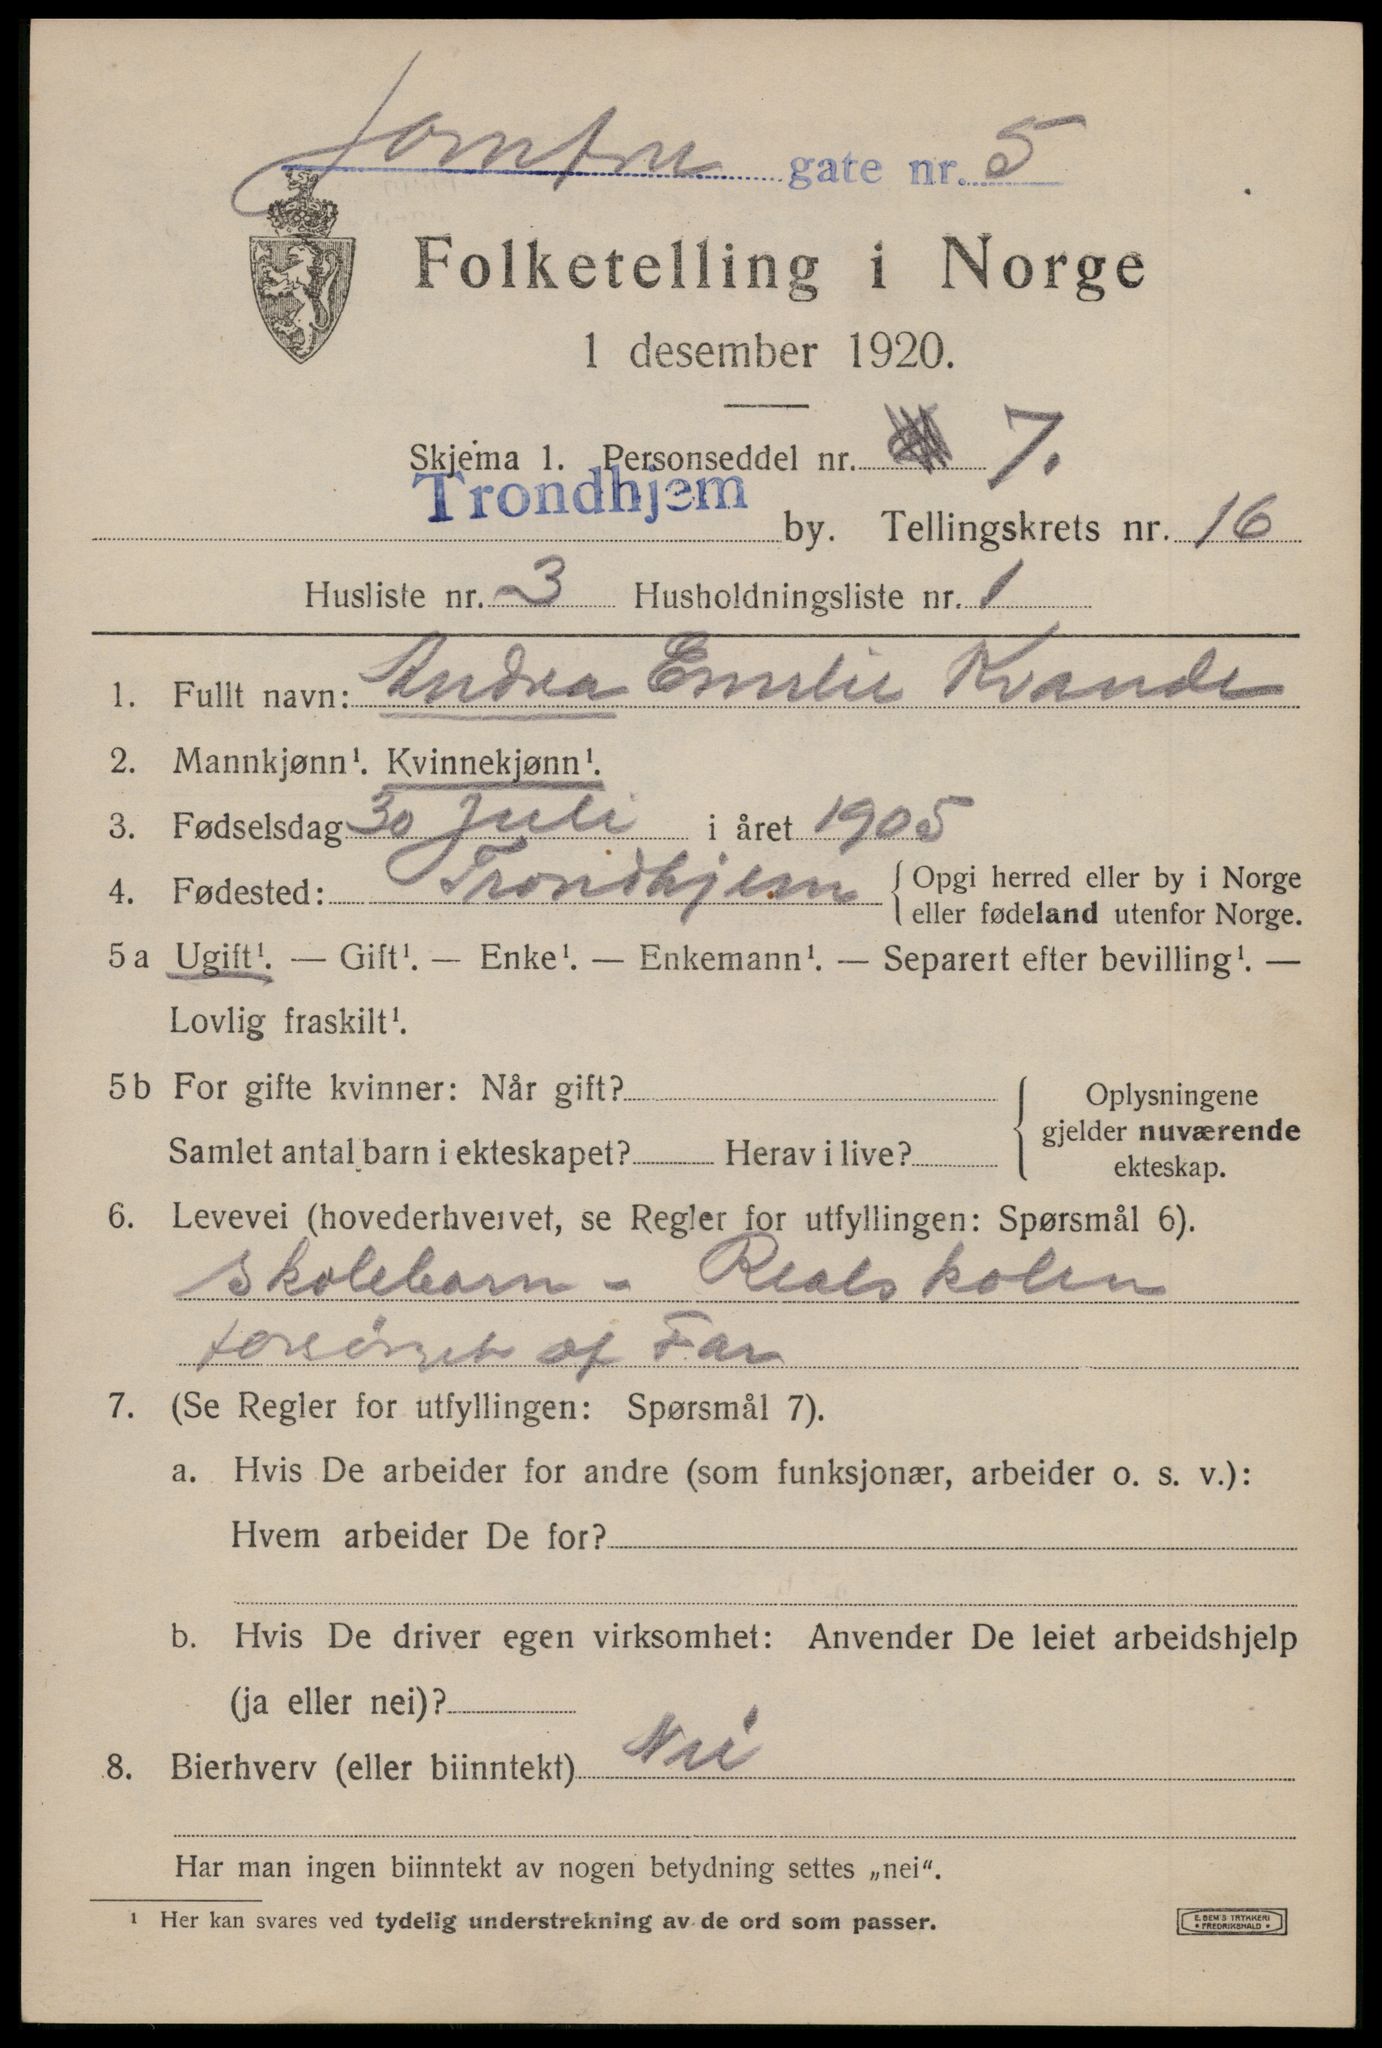 Jomfru gate nr. 5
Folketelling i Norge
1 desember 1920.
Skjema 1. Personseddel nr. 7.
Trondhjem by. Tellingskrets nr. 16
Husliste nr. 3 Husholdningsliste nr. 1
1. Fullt navn: Andrea Emelie Kvande
2. Mannkjønn¹. Kvinnekjønn¹.
3. Fødselsdag 30 Juli i året 1905
4. Fødested: Trondhjem { Opgi herred eller by i Norge
eller fødeland utenfor Norge.
5 a Ugift¹. — Gift¹. — Enke¹. — Enkemann¹. — Separert efter bevilling¹. —
Lovlig fraskilt¹.
5 b For gifte kvinner: Når gift?
Samlet antal barn i ekteskapet? Herav i live?
Oplysningene
gjelder nuværende
ekteskap.
6. Levevei (hovederhvervet, se Regler for utfyllingen: Spørsmål 6).
Skolebarn - Realskolen
forsörget af Far
7. (Se Regler for utfyllingen: Spørsmål 7).
a. Hvis De arbeider for andre (som funksjonær, arbeider o. s. v.):
Hvem arbeider De for?
b. Hvis De driver egen virksomhet: Anvender De leiet arbeidshjelp
(ja eller nei)?
8. Bierhverv (eller biinntekt) Nei
Har man ingen biinntekt av nogen betydning settes „nei“.
¹ Her kan svares ved tydelig understrekning av de ord som passer.
E. SEM'S TRYKKERI
• FREDRIKSHALD •